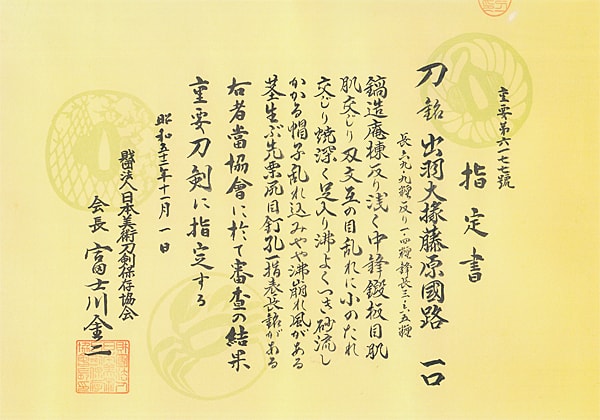 重要第六一七七號
指定書
刀 銘 出羽大掾藤原國路 一口
長六九・九糎反り一・四糎鋒長三・五糎
鎬造庵棟反り浅く中鋒鍛板目肌
肌交じり刃文互の目乱れに小のたれ
交じり焼深く足入り沸よくつき砂流し
かかる帽子乱れ込みやや沸崩れ風がある
茎生ぶ先栗尻目釘孔一指表長銘がある
右者當協會に於て審査の結果
重要刀剣に指定する
昭和五十二年十一月一日
財団法人日本美術刀剣保存協会
会長 富士川金二